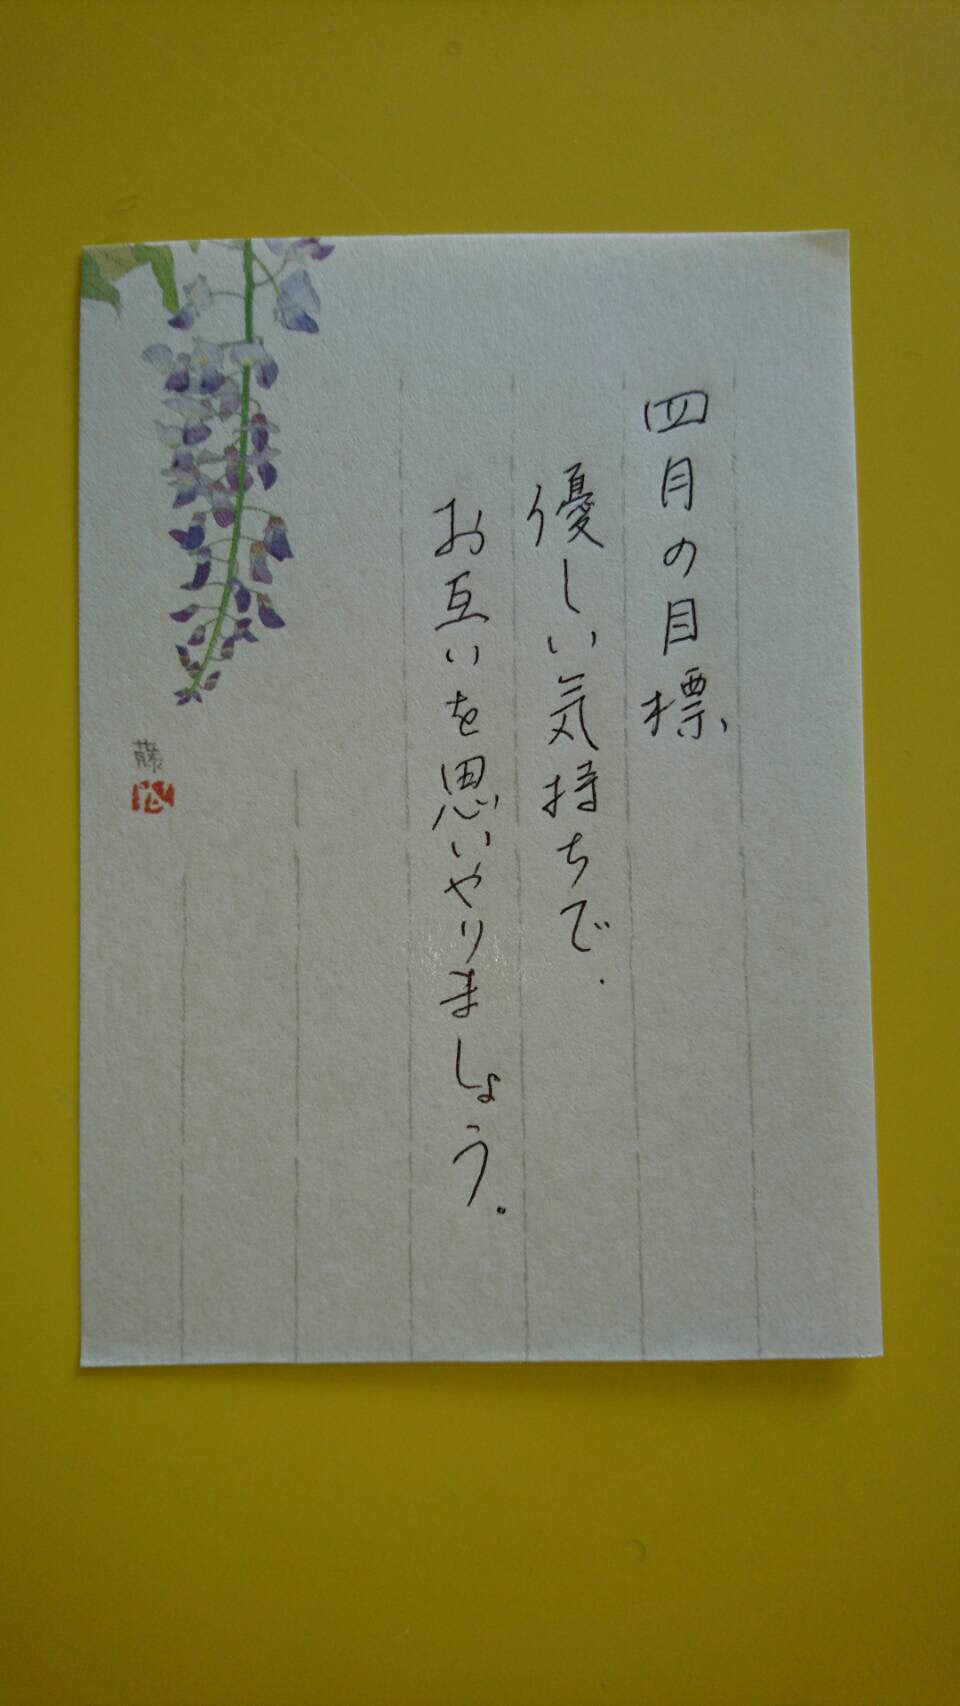 四月の目標
優しい気持ちで、
お互いを思いやりましょう。
藤